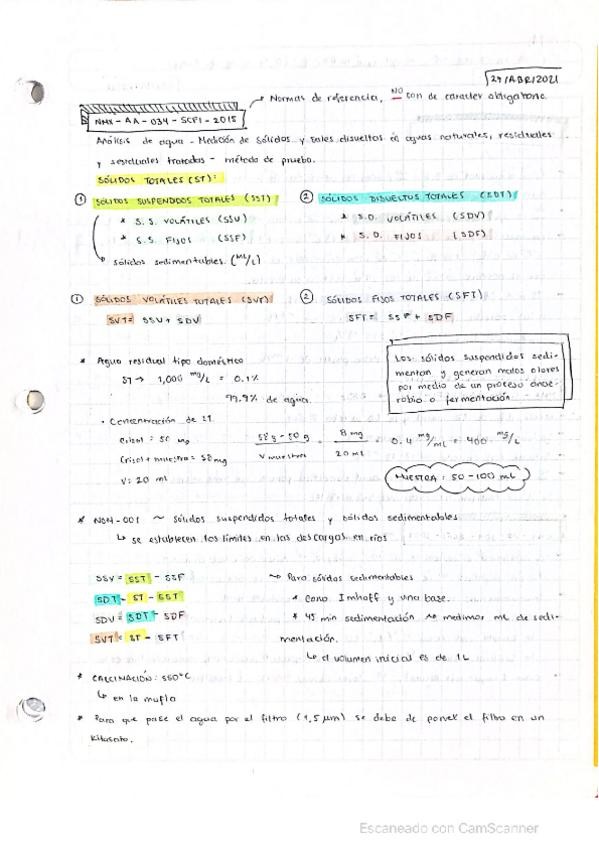 29/ABR/2021
Normas de referencia, NO son de carácter obligatorio.
NMX-AA-034-SCFI-2015
Análisis de agua - Medición de sólidos y sales disueltos en aguas naturales, residuales
y residuales tratadas - método de prueba.
SÓLIDOS TOTALES (ST):
① SÓLIDOS SUSPENDIDOS TOTALES (SST)
* S.S. VOLÁTILES (SSV)
* S.S. FIJOS (SSF)
sólidos sedimentables. (mL/L)
② SÓLIDOS DISUELTOS TOTALES (SDT)
* S.D. VOLÁTILES (SDV)
* S.D. FIJOS (SDF)
① SÓLIDOS VOLÁTILES TOTALES (SVT)
SVT = SSV + SDV
② SÓLIDOS FIJOS TOTALES (SFT)
SFT = SSF + SDF
* Agua residual tipo doméstico
ST → 1,000 mg/L = 0.1%
99.9% de agua.
Los sólidos suspendidos sedi-
mentan y generan malos olores
por medio de un proceso anae-
robio o fermentación.
• Concentración de ST.
Crisol = 50 mg
Crisol + muestra = 58 mg
V = 20 mL
58 g - 50 g / V muestra = 8 mg / 20 mL = 0.4 mg/mL = 400 mg/L
MUESTRA: 50 - 100 mL
* NOM-001 ~ sólidos suspendidos totales y sólidos sedimentables
↳ se establecen los límites en las descargas en ríos
SSV = SST - SSF
SDT = ST - SST
SDV = SDT - SDF
SVT = ST - SFT
~ Para sólidos sedimentables
* Cono Imhoff y una base.
* 45 min sedimentación ~ medimos mL de sedi-
mentación.
↳ el volumen inicial es de 1L
* CALCINACIÓN: 550°C
↳ en la mufla
* Para que pase el agua por el filtro (1,5 µm) se debe de poner el filtro en un
kitasato.
Escaneado con CamScanner